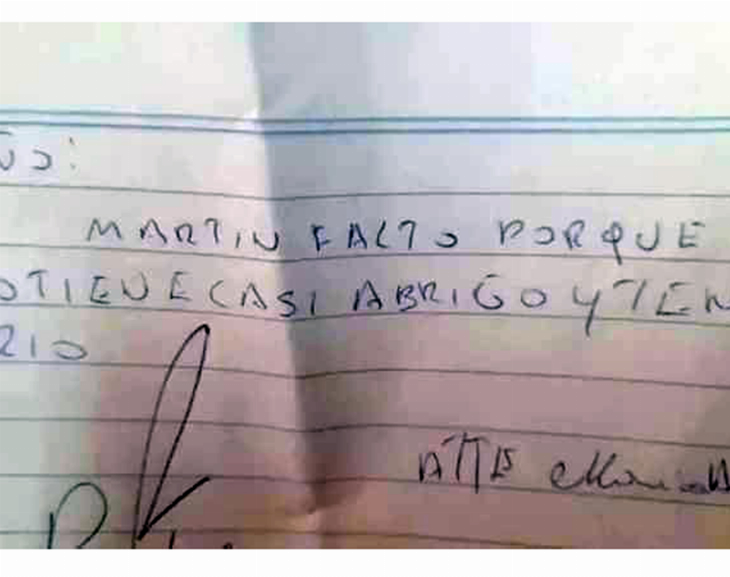 MARTIN FALTO PORQUE
OTIENECASI ABRIGO YTEN
RIO
ATTE